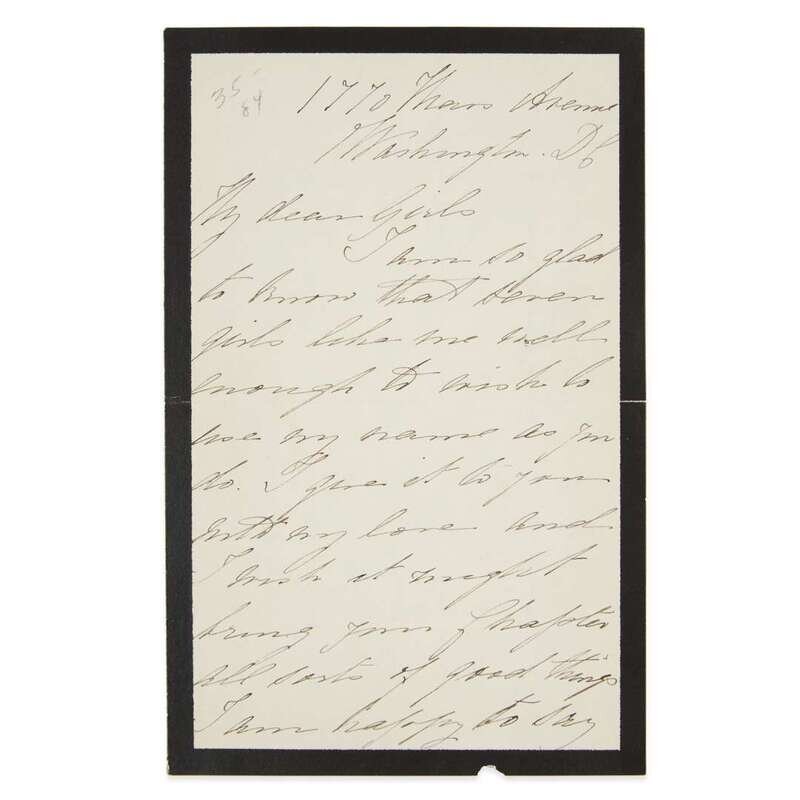 35
84
1770 Mass Avenue
Washington. DC
My dear Girls
I am so glad
to know that seven
girls like me well
enough to wish to
use my name as you
do. I give it to you
with my love and
I wish it might
bring your Chapter
all sorts of good things
I am happy to say